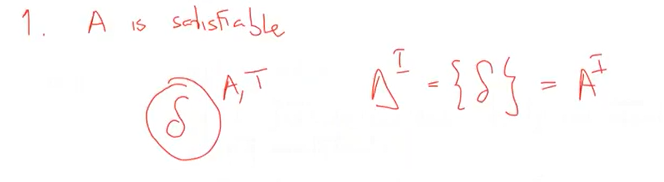 1. A is satisfiable
δ A, T Δ^I = {δ} = A^I